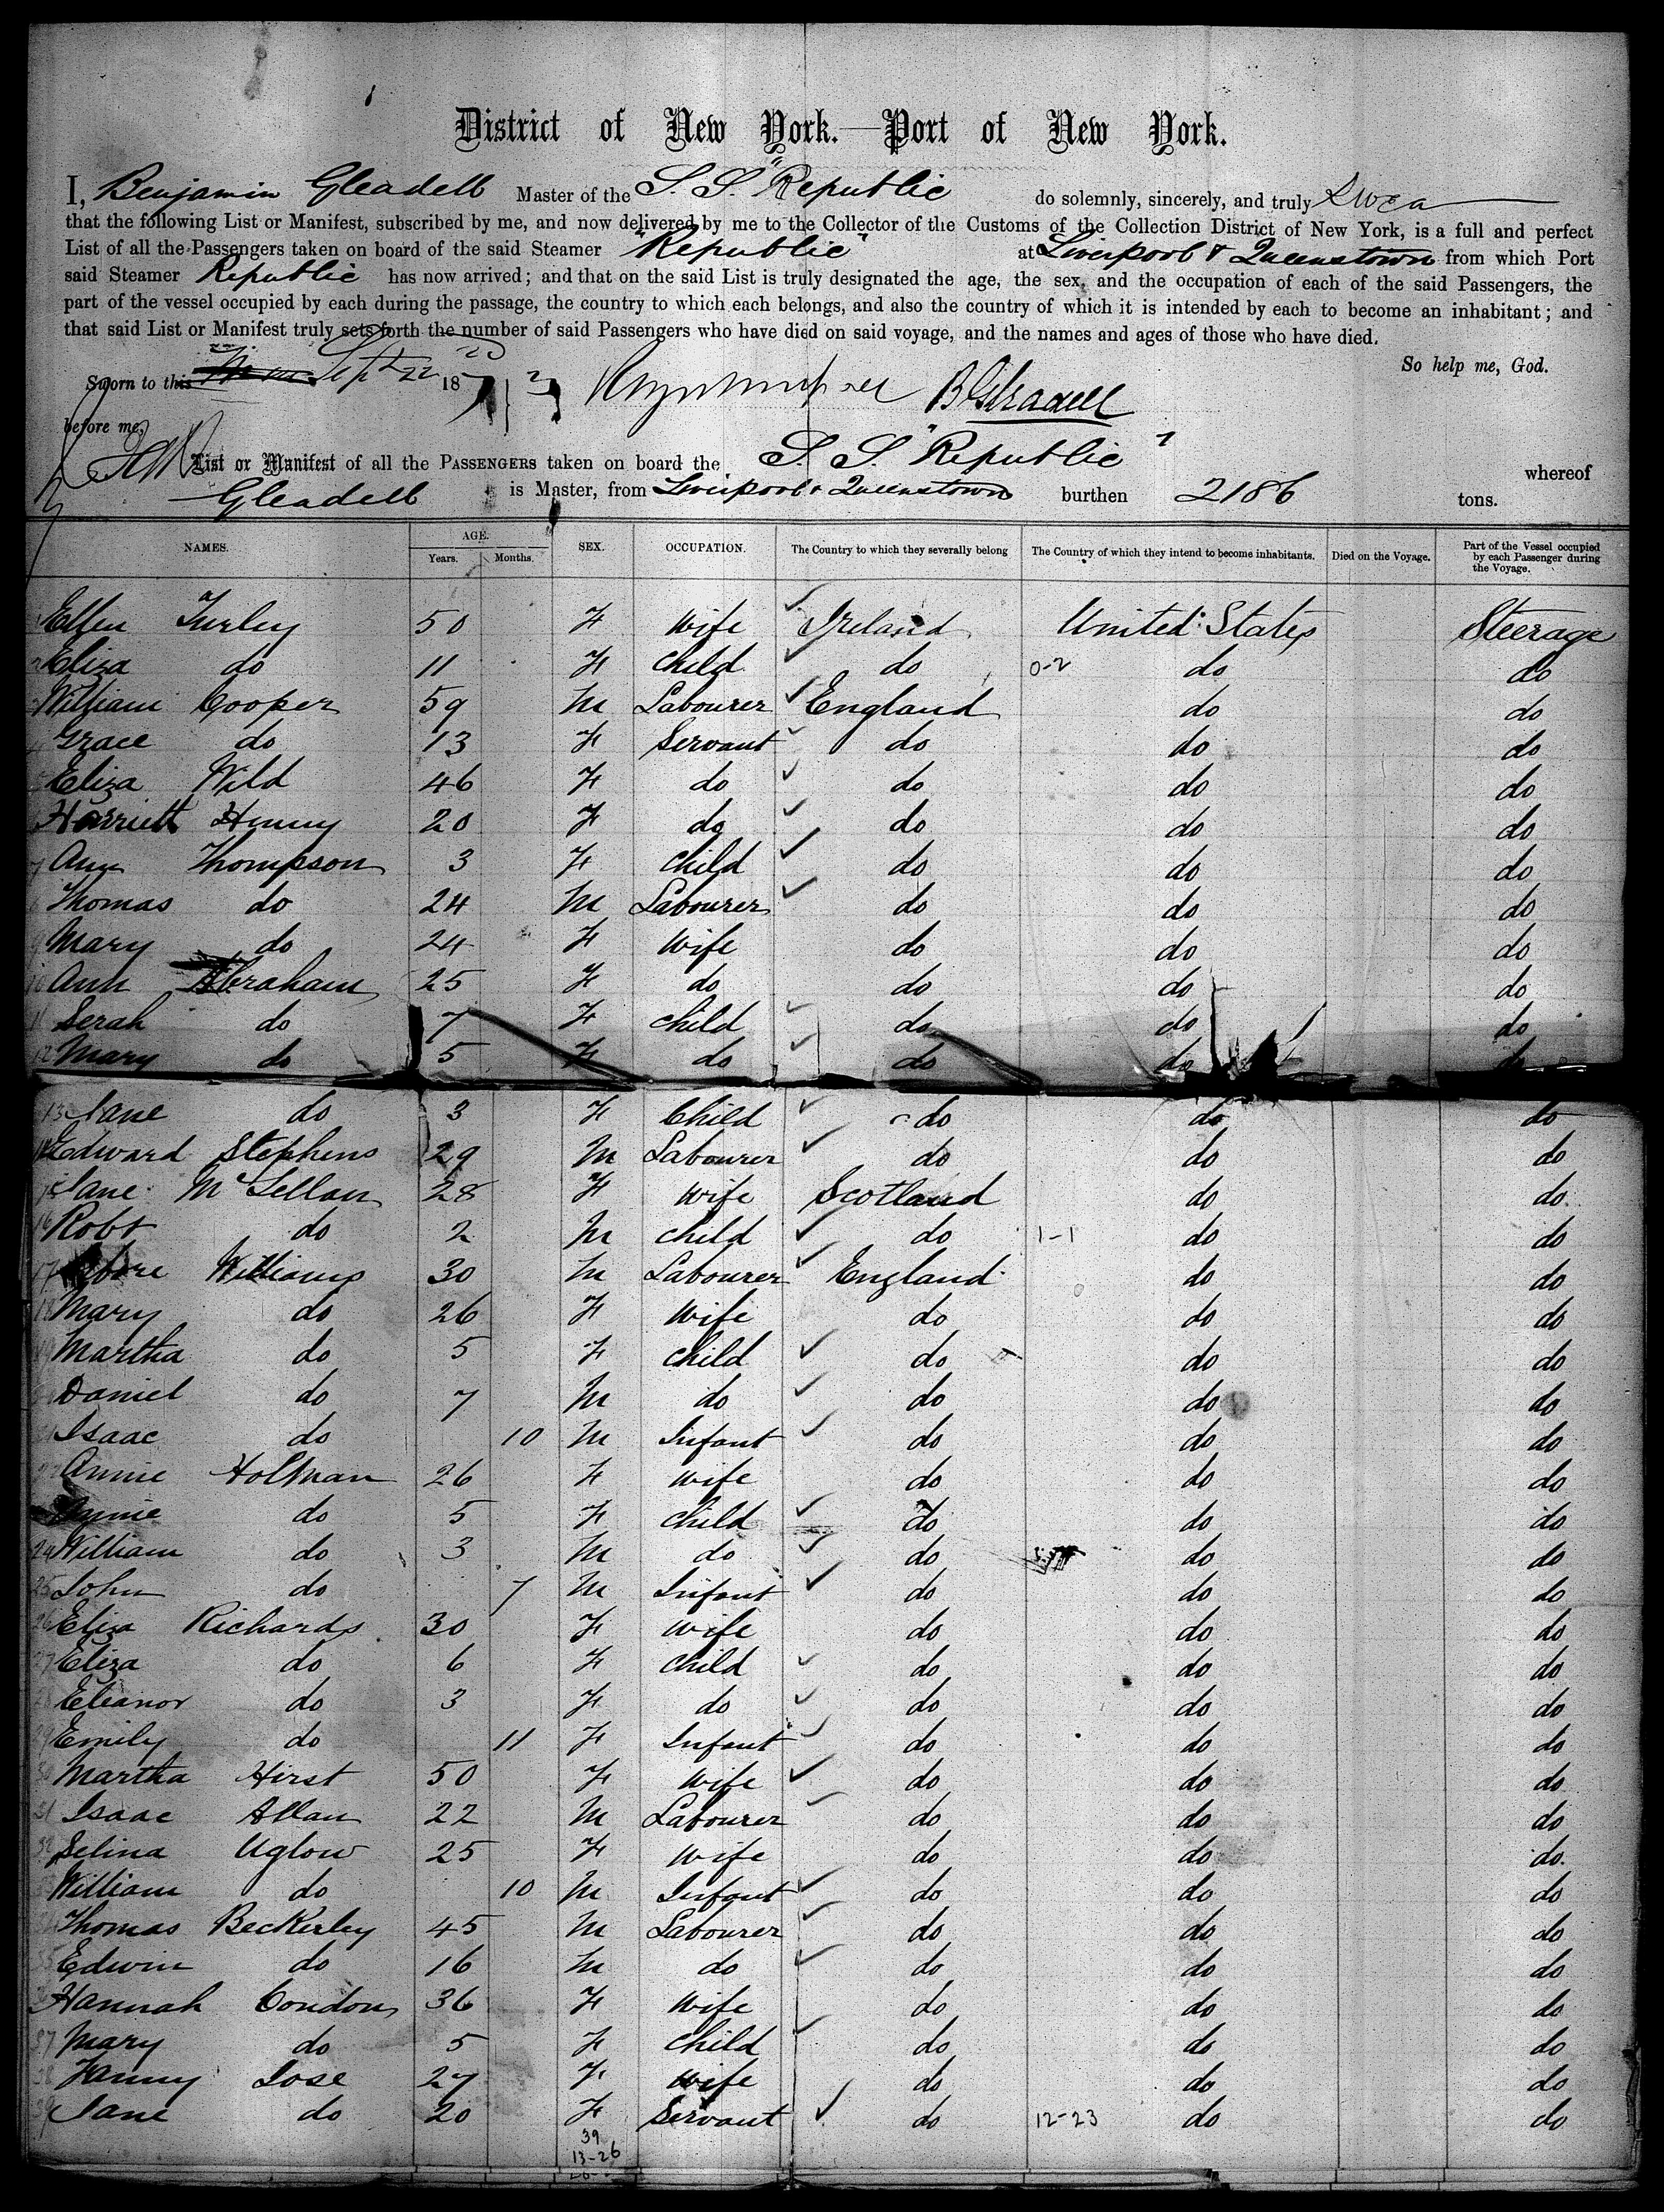 District of New York.—Port of New York.
I, Benjamin Gleadell Master of the S. S. "Republic do solemnly, sincerely, and truly Swea
that the following List or Manifest, subscribed by me, and now delivered by me to the Collector of the Customs of the Collection District of New York, is a full and perfect
List of all the Passengers taken on board of the said Steamer "Republic" at Liverpool & Queenstown from which Port
said Steamer Republic has now arrived; and that on the said List is truly designated the age, the sex, and the occupation of each of the said Passengers, the
part of the vessel occupied by each during the passage, the country to which each belongs, and also the country of which it is intended by each to become an inhabitant; and
that said List or Manifest truly sets forth the number of said Passengers who have died on said voyage, and the names and ages of those who have died.
So help me, God.
Sworn to this Sept 22 187 B Gleadell
before me,
List or Manifest of all the PASSENGERS taken on board the S. S. "Republic" whereof
Gleadell is Master, from Liverpool & Queenstown burthen 2186 tons.
NAMES. AGE. Years. Months. SEX. OCCUPATION. The Country to which they severally belong The Country of which they intend to become inhabitants. Died on the Voyage. Part of the Vessel occupied by each Passenger during the Voyage.
Ellen Turley 50 F Wife Ireland United States Steerage
Eliza do 11 F Child do 0-2 do do
William Cooper 59 M Labourer England do do
4 Grace do 13 F Servant do do do
5 Eliza Wild 46 F do do do do
Harriett Henny 20 F do do do do
7 Ann Thompson 3 F Child do do do
8 Thomas do 24 M Labourer do do do
9 Mary do 24 F Wife do do do
10 Ann Abraham 25 F do do do do
11 Serah do 7 F Child do do do
12 Mary do 5 F do do do do
13 Jane do 3 F Child do do do
14 Edward Stephens 29 M Labourer do do do
15 Jane McLellan 28 F Wife Scotland do do
16 Robt do 2 M Child do 1-1 do do
17 Williams 30 M Labourer England do do
18 Mary do 26 F Wife do do do
19 Martha do 5 F Child do do do
Daniel do 7 M do do do do
21 Isaac do 10 M Infant do do do
22 Annie Holman 26 F Wife do do do
do 5 F Child do do do
24 William do 3 M do do do do
25 John do 7 M Infant do do do
26 Eliza Richards 30 F Wife do do do
27 Eliza do 6 F Child do do do
28 Eleanor do 3 F do do do do
29 Emily do 11 F Infant do do do
30 Martha Hirst 50 F Wife do do do
31 Isaac Allan 22 M Labourer do do do
32 Selina Uglow 25 F Wife do do do
William do 10 M Infant do do do
Thomas Beckerley 45 M Labourer do do do
35 Edwin do 16 M do do do do
Hannah Condon 36 F Wife do do do
37 Mary do 5 F Child do do do
38 Fanny Lose 27 F Wife do do do
39 Jane do 20 F Servant do 12-23 do do
39
13-26